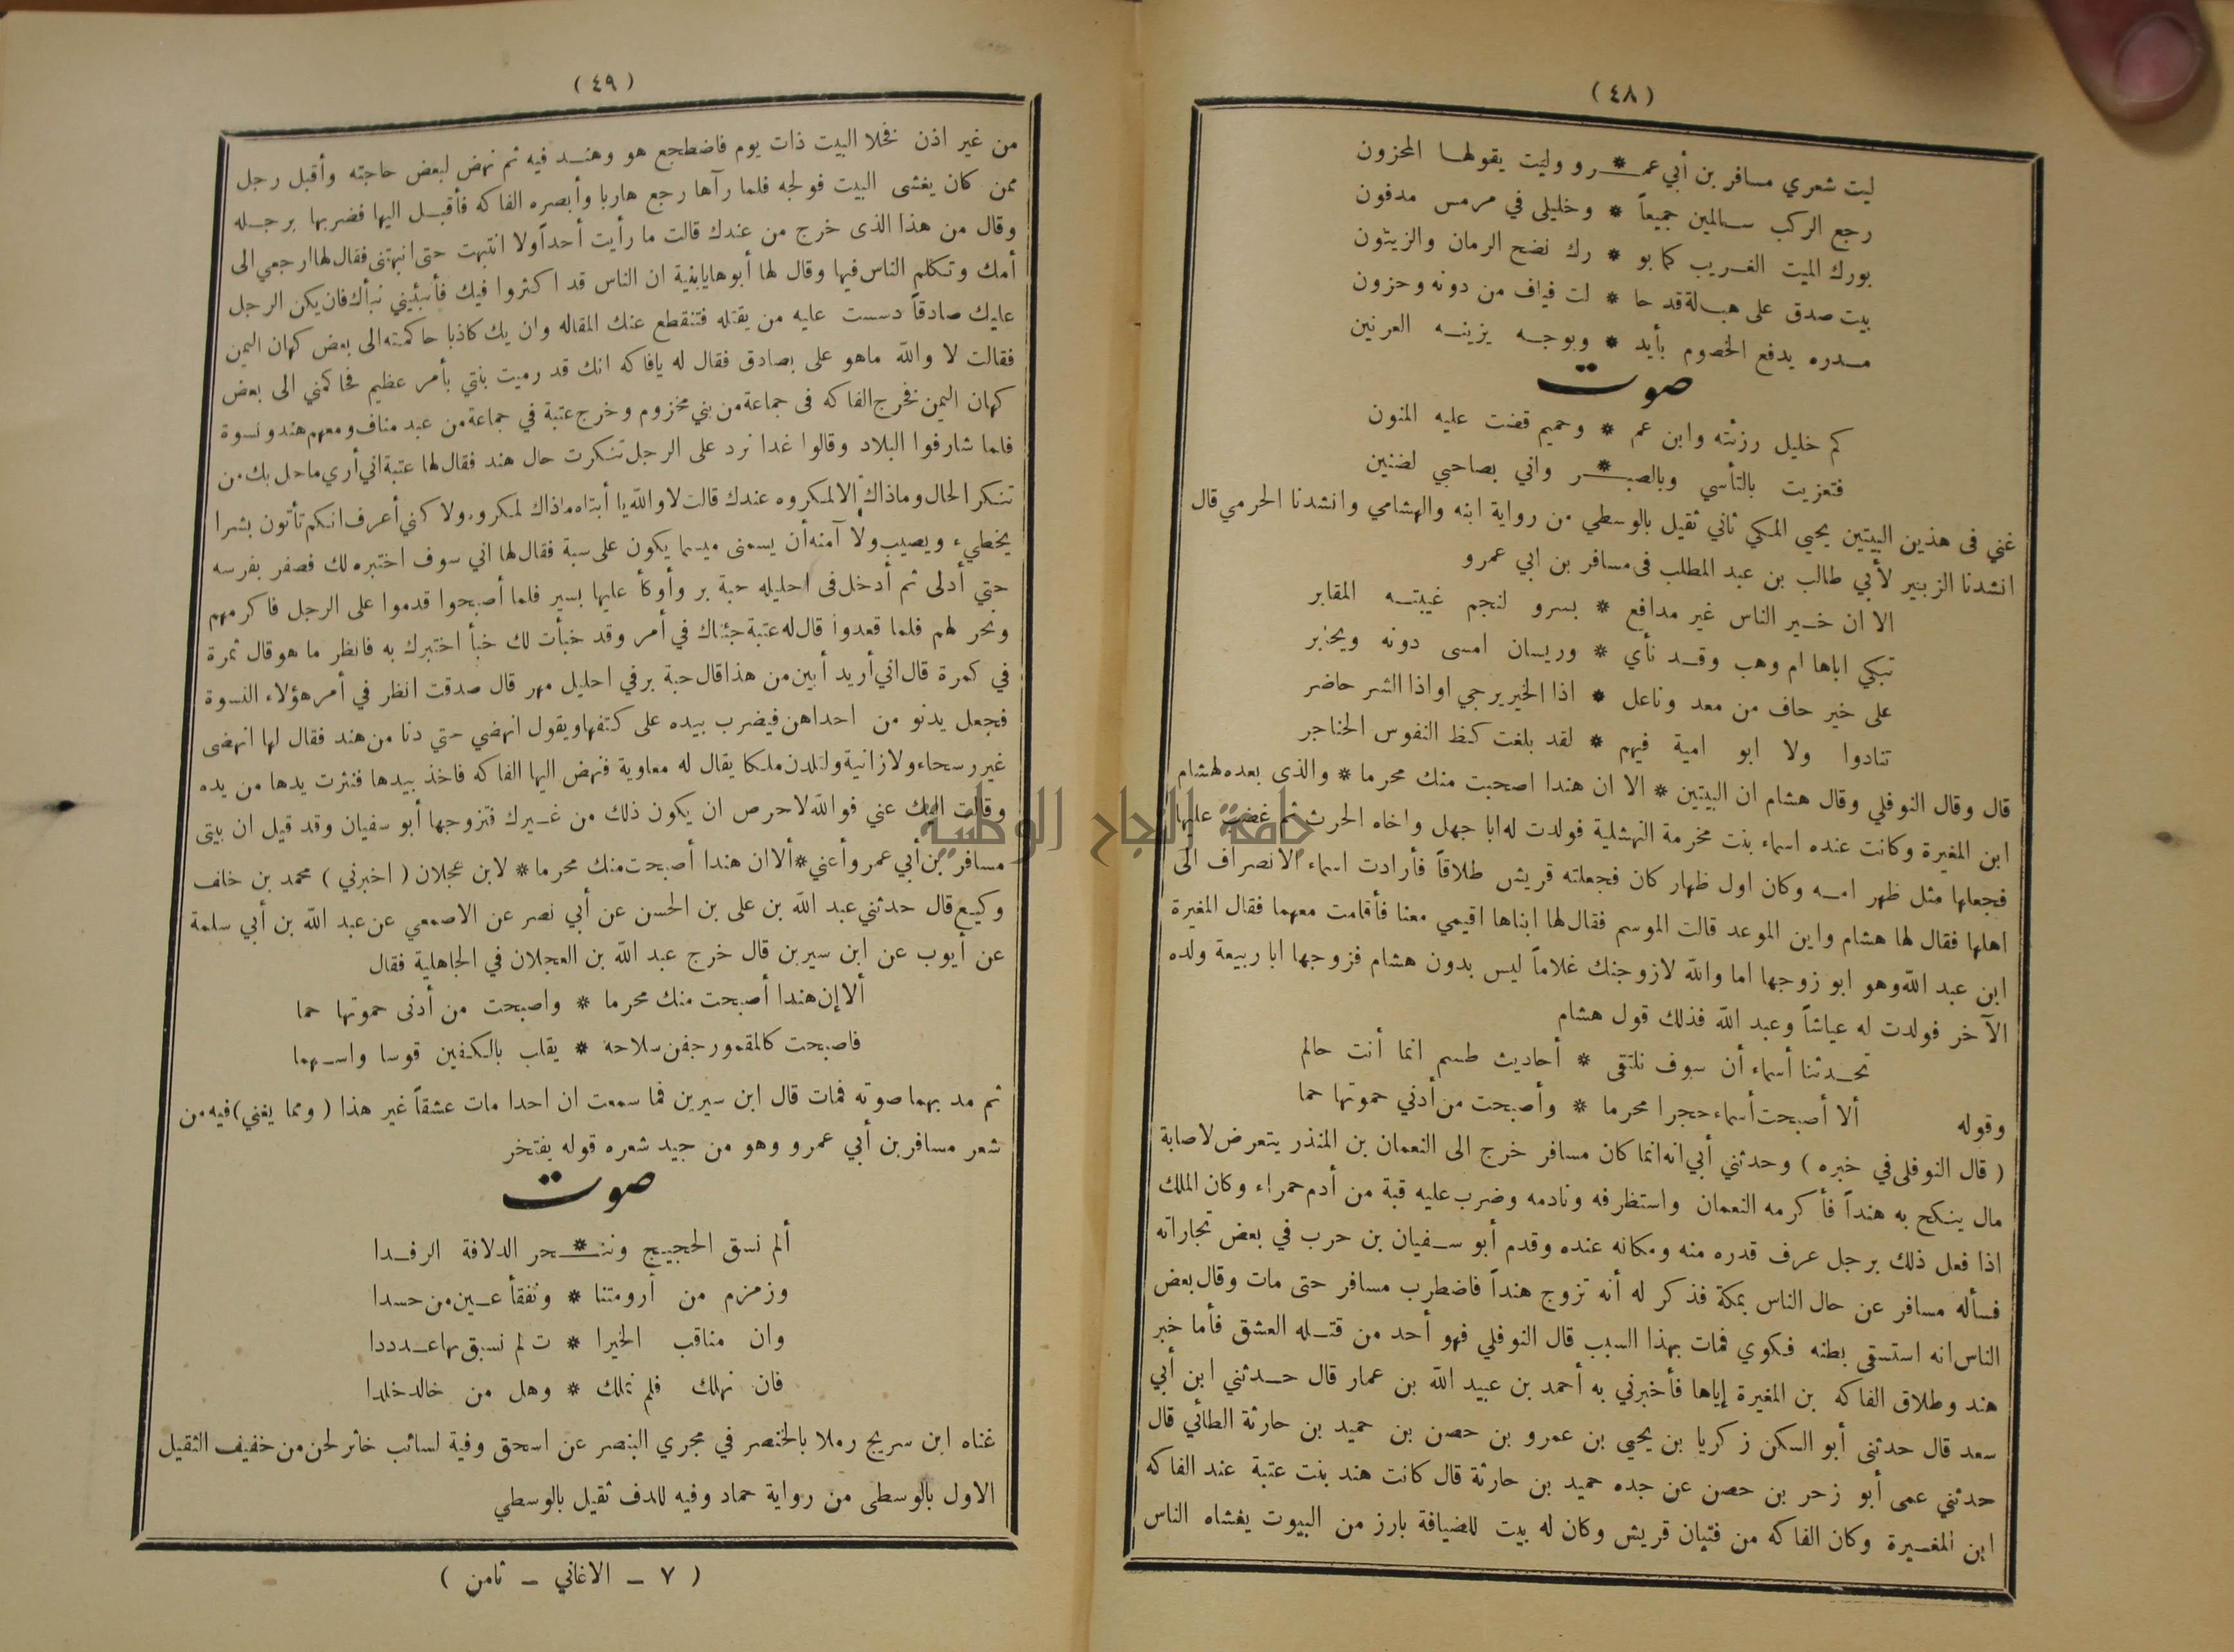 (٤٨)
ليت شعري مسافر بن أبي عمـ * ـرو وليت يقولها المحزون
رجع الركب سالمين جميعاً * وخليلى في مرمس مدفون
بورك الميت الغريب كما بو * رك نضح الرمان والزيتون
بيت صدق على هبالة قد حا * لت فياف من دونه وحزون
مدره يدفع الخصوم بأيد * وبوجه يزينه العرنين
صوت
كم خليل رزئته وابن عم * وحميم قضت عليه المنون
فتعزيت بالتأسي وبالصبـ * ـر واني بصاحبي لضنين
غني فى هذين البيتين يحيى المكي ثاني ثقيل بالوسطي من رواية ابنه والهشامي وانشدنا الحرمي قال
انشدنا الزبير لأبي طالب بن عبد المطلب فى مسافر بن ابي عمرو
الا ان خير الناس غير مدافع * بسرو لنجم غيبته المقابر
تبكي اباها ام وهب وقد نأي * وريسان امسى دونه ويحابر
على خير حاف من معد وناعل * اذا الخير يرجي او اذا الشر حاضر
تنادوا ولا ابو امية فيهم * لقد بلغت كظ النفوس الحناجر
قال وقال النوفلي وقال هشام ان البيتين * الا ان هندا اصبحت منك محرما * والذى بعده لهشام
ابن المغيرة وكانت عنده اسماء بنت مخرمة النهشلية فولدت له ابا جهل واخاه الحرث ثم غضب عليها
فجعلها مثل ظهر امه وكان اول ظهار كان فجعلته قريش طلاقاً فأرادت اسماء الانصراف الى
اهلها فقال لها هشام واين الموعد قالت الموسم فقال لها ابناها اقيمي معنا فأقامت معهما فقال المغيرة
ابن عبد الله وهو ابو زوجها اما والله لازوجنك غلاماً ليس بدون هشام فزوجها ابا ربيعة ولده
الآخر فولدت له عياشاً وعبد الله فذلك قول هشام
تحدثنا أسماء أن سوف نلتقى * أحاديث طسم انما أنت حالم
وقوله ألا أصبحت أسماء حجرا محرما * وأصبحت من أدني حموتها حما
( قال النوفلى في خبره ) وحدثني أبي انه انما كان مسافر خرج الى النعمان بن المنذر يتعرض لاصابة
مال ينكح به هنداً فأكرمه النعمان واستظرفه ونادمه وضرب عليه قبة من أدم حمراء وكان الملك
اذا فعل ذلك برجل عرف قدره منه ومكانه عنده وقدم أبو سفيان بن حرب في بعض تجاراته
فسأله مسافر عن حال الناس بمكة فذكر له أنه تزوج هنداً فاضطرب مسافر حتى مات وقال بعض
الناس انه استسقى بطنه فكوي فمات بهذا السبب قال النوفلي فهو أحد من قتله العشق فأما خبر
هند وطلاق الفاكه بن المغيرة إياها فأخبرني به أحمد بن عبيد الله بن عمار قال حدثني ابن أبي
سعد قال حدثنى أبو السكن زكريا بن يحيى بن عمرو بن حصن بن حميد بن حارثة الطائي قال
حدثني عمى أبو زحر بن حصن عن جده حميد بن حارثة قال كانت هند بنت عتبة عند الفاكه
ابن المغيرة وكان الفاكه من فتيان قريش وكان له بيت للضيافة بارز من البيوت يغشاه الناس
(٤٩)
من غير اذن فخلا البيت ذات يوم فاضطجع هو وهند فيه ثم نهض لبعض حاجته وأقبل رجل
ممن كان يغشى البيت فولجه فلما رآها رجع هاربا وأبصره الفاكه فأقبل اليها فضربها برجله
وقال من هذا الذى خرج من عندك قالت ما رأيت أحداً ولا انتبهت حتى انبهتنى فقال لها ارجعي الى
أمك وتكلم الناس فيها وقال لها أبوها يا بنية ان الناس قد اكثروا فيك فأنبئيني نبأك فان يكن الرجل
عليك صادقاً دسست عليه من يقتله فتنقطع عنك المقاله وان يك كاذبا حاكمته الى بعض كهان اليمن
فقالت لا والله ماهو على بصادق فقال له يافاكه انك قد رميت بنتي بأمر عظيم فحاكمني الى بعض
كهان اليمن فخرج الفاكه فى جماعة من بني مخزوم وخرج عتبة في جماعة من عبد مناف ومعهم هند ونسوة
فلما شارفوا البلاد وقالوا غدا نرد على الرجل تنكرت حال هند فقال لها عتبة اني أري ما حل بك من
تنكر الحال وماذاك الا لمكروه عندك قالت لا والله يا أبتاه ماذاك لمكروه ولاكني أعرف انكم تأتون بشرا
يخطيء ويصيب ولا آمنه أن يسمنى ميسما يكون على سبة فقال لها اني سوف اختبره لك فصفر بفرسه
حتي أدلى ثم أدخل فى احليله حبة بر وأوكأ عليها بسير فلما أصبحوا قدموا على الرجل فاكرمهم
ونحر لهم فلما قعدوا قال له عتبة جئناك في أمر وقد خبأت لك خبأ اختبرك به فانظر ما هو قال ثمرة
في كمرة قال اني أريد أبين من هذا قال حبة بر في احليل مهر قال صدقت انظر في أمر هؤلاء النسوة
فجعل يدنو من احداهن فيضرب بيده على كتفها ويقول انهضي حتي دنا من هند فقال لها انهضى
غير رسحاء ولا زانية ولتلدن ملكا يقال له معاوية فنهض اليها الفاكه فاخذ بيدها فنثرت يدها من يده
وقالت اليك عني فو الله لاحرص ان يكون ذلك من غيرك فتزوجها أبو سفيان وقد قيل ان بيتى
مسافر بن أبي عمرو أعني * ألا ان هندا أصبحت منك محرما * لابن عجلان ( اخبرني ) محمد بن خلف
وكيع قال حدثني عبد الله بن على بن الحسن عن أبي نصر عن الاصمعي عن عبد الله بن أبي سلمة
عن أيوب عن ابن سيرين قال خرج عبد الله بن العجلان في الجاهلية فقال
ألا إن هندا أصبحت منك محرما * واصبحت من أدنى حموتها حما
فاصبحت كالمقمور جفن سلاحه * يقلب بالكفين قوسا واسهما
ثم مد بهما صوته فمات قال ابن سيرين فما سمعت ان احدا مات عشقاً غير هذا ( ومما يغني ) فيه من
شعر مسافر بن أبي عمرو وهو من جيد شعره قوله يفتخر
صوت
ألم نسق الحجيج وننـ * ـحر الدلافة الرفدا
وزمزم من أرومتنا * ونفقأ عين من حسدا
وان مناقب الخيرا * ت لم نسبق بها عددا
فان نهلك فلم نملك * وهل من خالد خلدا
غناه ابن سريج رملا بالخنصر في مجري البنصر عن اسحق وفية لسائب خاثر لحن من خفيف الثقيل
الاول بالوسطى من رواية حماد وفيه للدف ثقيل بالوسطي
( ٧ – الاغاني – ثامن )
جامعة النجاح الوطنية